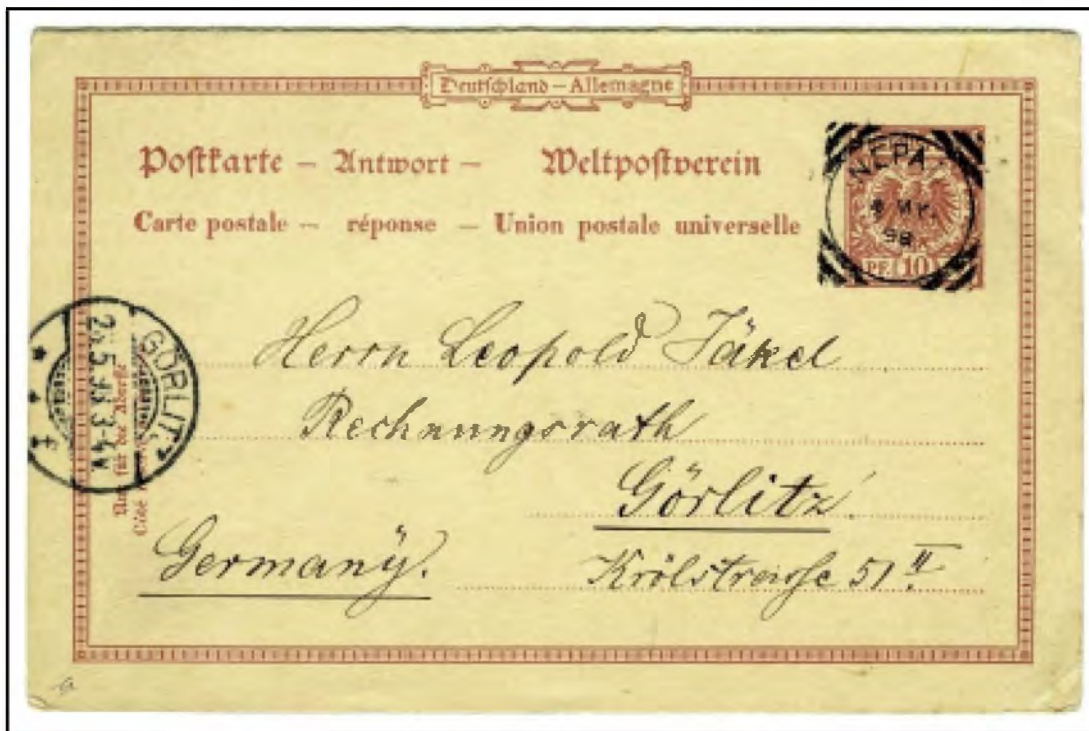 Deutschland – Allemagne
Postkarte – Antwort – Weltpostverein
Carte postale – réponse – Union postale universelle
NEPA
MY.
98
PF. 10
Herrn Leopold Jäkel
Rechnungsrath
Görlitz
Germany.
Krölstrasse 51 II
GÖRLITZ
3-4N
für die